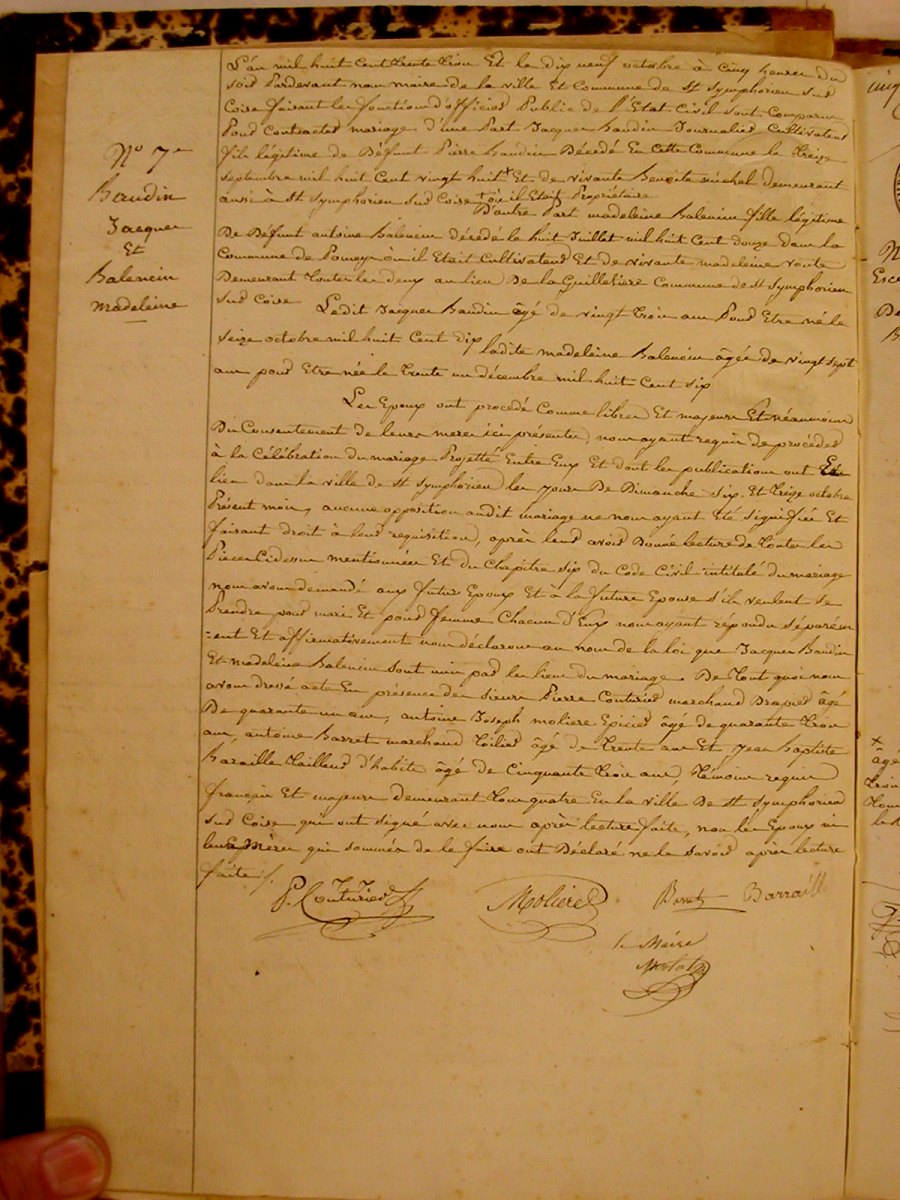 N° 7e
Baudin
Jacques
Et
Balencin
Madeleine
L'an mil huit Cent trente trois Et le dix neuf octobre à Cinq heures du
soir Pardevant nous maire de la ville Et Commune de St Symphorien sur
Coise faisant les fonctions d'officier Public de l'Etat Civil sont Comparus
Pour Contracter mariage d'une Part Jacques Baudin Journalier Cultivateur
fils légitime de Défunt Pierre Baudin Décédé En Cette Commune le treize
septembre mil huit Cent vingt huit + Et de vivante Benoite michel demeurant
aussi à St Symphorien sur Coise + où il Etait Propriétaire
D'autre Part madeleine Balencin fille légitime
De Défunt antoine Balencin décédé le huit Juillet mil huit Cent Douze dans la
Commune de Pomeys où il Etait Cultivateur Et de vivante madeleine
Demeurant toutes les deux au lieu De la Guilletière Commune de St Symphorien
sur Coise Ledit Jacques Baudin âgé de vingt trois ans Pour Etre né le
seize octobre mil huit Cent dix ladite madeleine Balencin âgée de vingt sept
ans pour Etre née le trente un décembre mil huit Cent six
Les Epoux ont procédé Comme libres Et majeurs Et Néanmoins
Du Consentement de leurs meres ici présentes, nous ayant requis de procéder
à la Célébration du mariage Projetté Entre Eux Et dont les publications ont Eu
lieu dans la ville de St Symphorien les Jours De Dimanche six Et treize octobre
Présent mois, aucune opposition audit mariage ne nous ayant Eté signifiée Et
faisant droit à leur requisition, après leur avoir Donné lecture de toutes les
Pieces Cidessus mentionnées Et du Chapitre six du Code Civil intitulé du mariage
nous avons demandé aux futur Epoux Et à la future Epouse s'ils veulent se
Prendre pour mari Et pour femme Chacun d'Eux nous ayant repondu séparém
=ent Et affirmativement nous déclarons au nom de la loi que Jacques Baudin
Et madeleine Balencin sont unis par les liens du mariage. De tout quoi nous
avons dressé acte En présence des sieurs Pierre Couturier marchand Drapier âgé
De quarante un ans, antoine Joseph moliere Epicier âgé de quarante trois
ans, antoine Barret marchand toilier âgé de trente ans Et Jean Baptiste
Baraille tailleur d'habits âgé de Cinquante trois ans, témoins requis
français Et majeurs demeurant tous quatre En la ville De St Symphorien
sur Coise qui ont signé avec nous après lecture faite, non les Epoux ni
leurs Mères qui sommés de le faire ont Déclaré ne le savoir après lecture
faite /.
P. Couturier Moliere Barret Barraille
le Maire